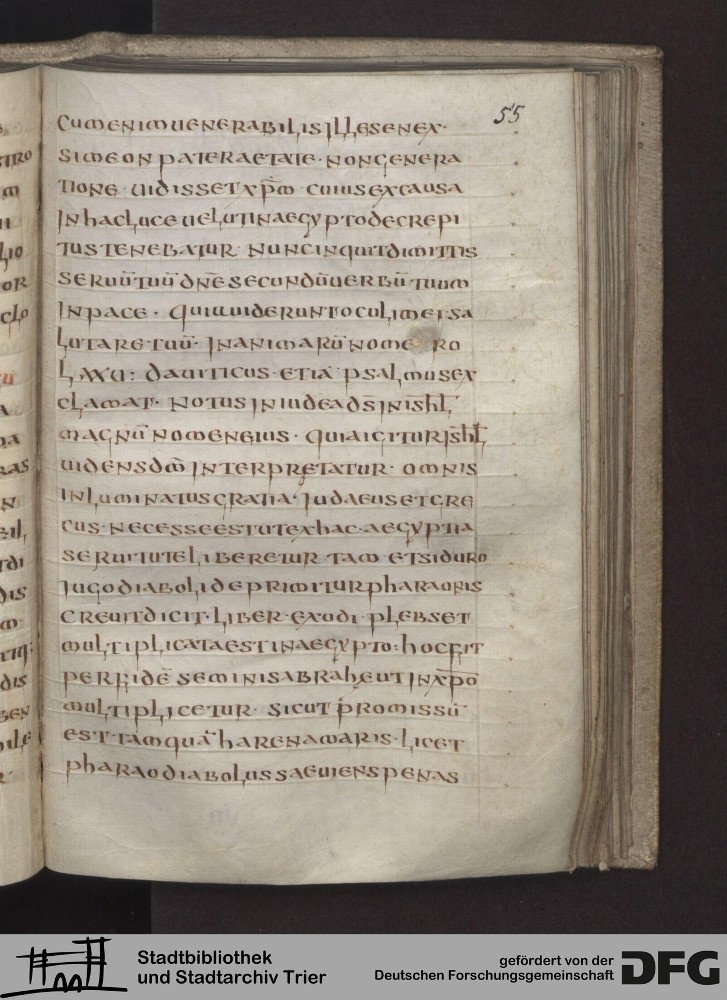 55
cum enim uenerabilis ille senex·
simeon pater aetate· non genera
tione· uidisset xp̅m cuius ex causa
in hac luce uelut in aegypto decrepi
tus tenebatur· nunc inquit dimittis
seruū tuū dn̄e secundū uerbū tuum
in pace· qui uiderunt oculi mei sa
lutare tuū· in animarū nom
lxxu: dauiticus· etiā psalmus ex
clamat· notus in iudea ds̄ in ishl̄
magnū nomen eius· quia igitur ishl̄
uidens dm̄ interpretatur· omnis
inluminatus gratia· iudaeus et gre
cus· necesse est ut ex hac· aegyptia
seruitute liberetur tam etsi duro
iugo diaboli deprimitur pharaonis
creuit dicit· liber· exodi· plebs et
multiplicata est in aegypto· hoc fit
per fidē seminis abrahe ut in xp̅o
multiplicetur· sicut promissū
est· tamquā harena maris· licet
pharao diabolus saeuiens penas
tro
m
lio
or
clo
a
ras
n
dis
m
dis
ben
Stadtbibliothek
und Stadtarchiv Trier
gefördert von der
Deutschen Forschungsgemeinschaft
DFG